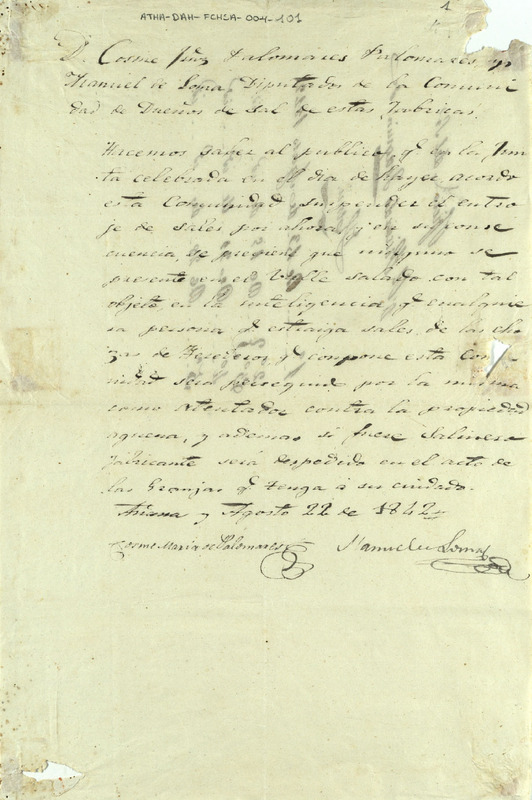 ATHA-DAH-FCHSA-004-101
1
D. Cosme Palomares Palomares y
Manuel de Loma Diputados de la Comuni
dad de Dueños de Sal de estas Fabricas.
Hacemos saber al publico, qe en la Jun
ta celebrada en el dia de hayer acordo
esta Comunidad suspender el entro
je de sales por ahora, y en su conse
cuencia, se previene que ninguno se
presente en el Valle salado con tal
objeto, en la inteligencia qe cualquie
ra persona qe estraiga sales de las cho
zas de Herederos qe compone esta Comu
nidad sera perseguido por la misma
como atentador contra la propiedad
agena, y ademas si fuese Salinero
fabricante será despedido en el acto de
las Granjas qe tenga á su cuidado.
Añana y Agosto 22 de 1842
Cosme Maria de Palomares Manuel de Loma